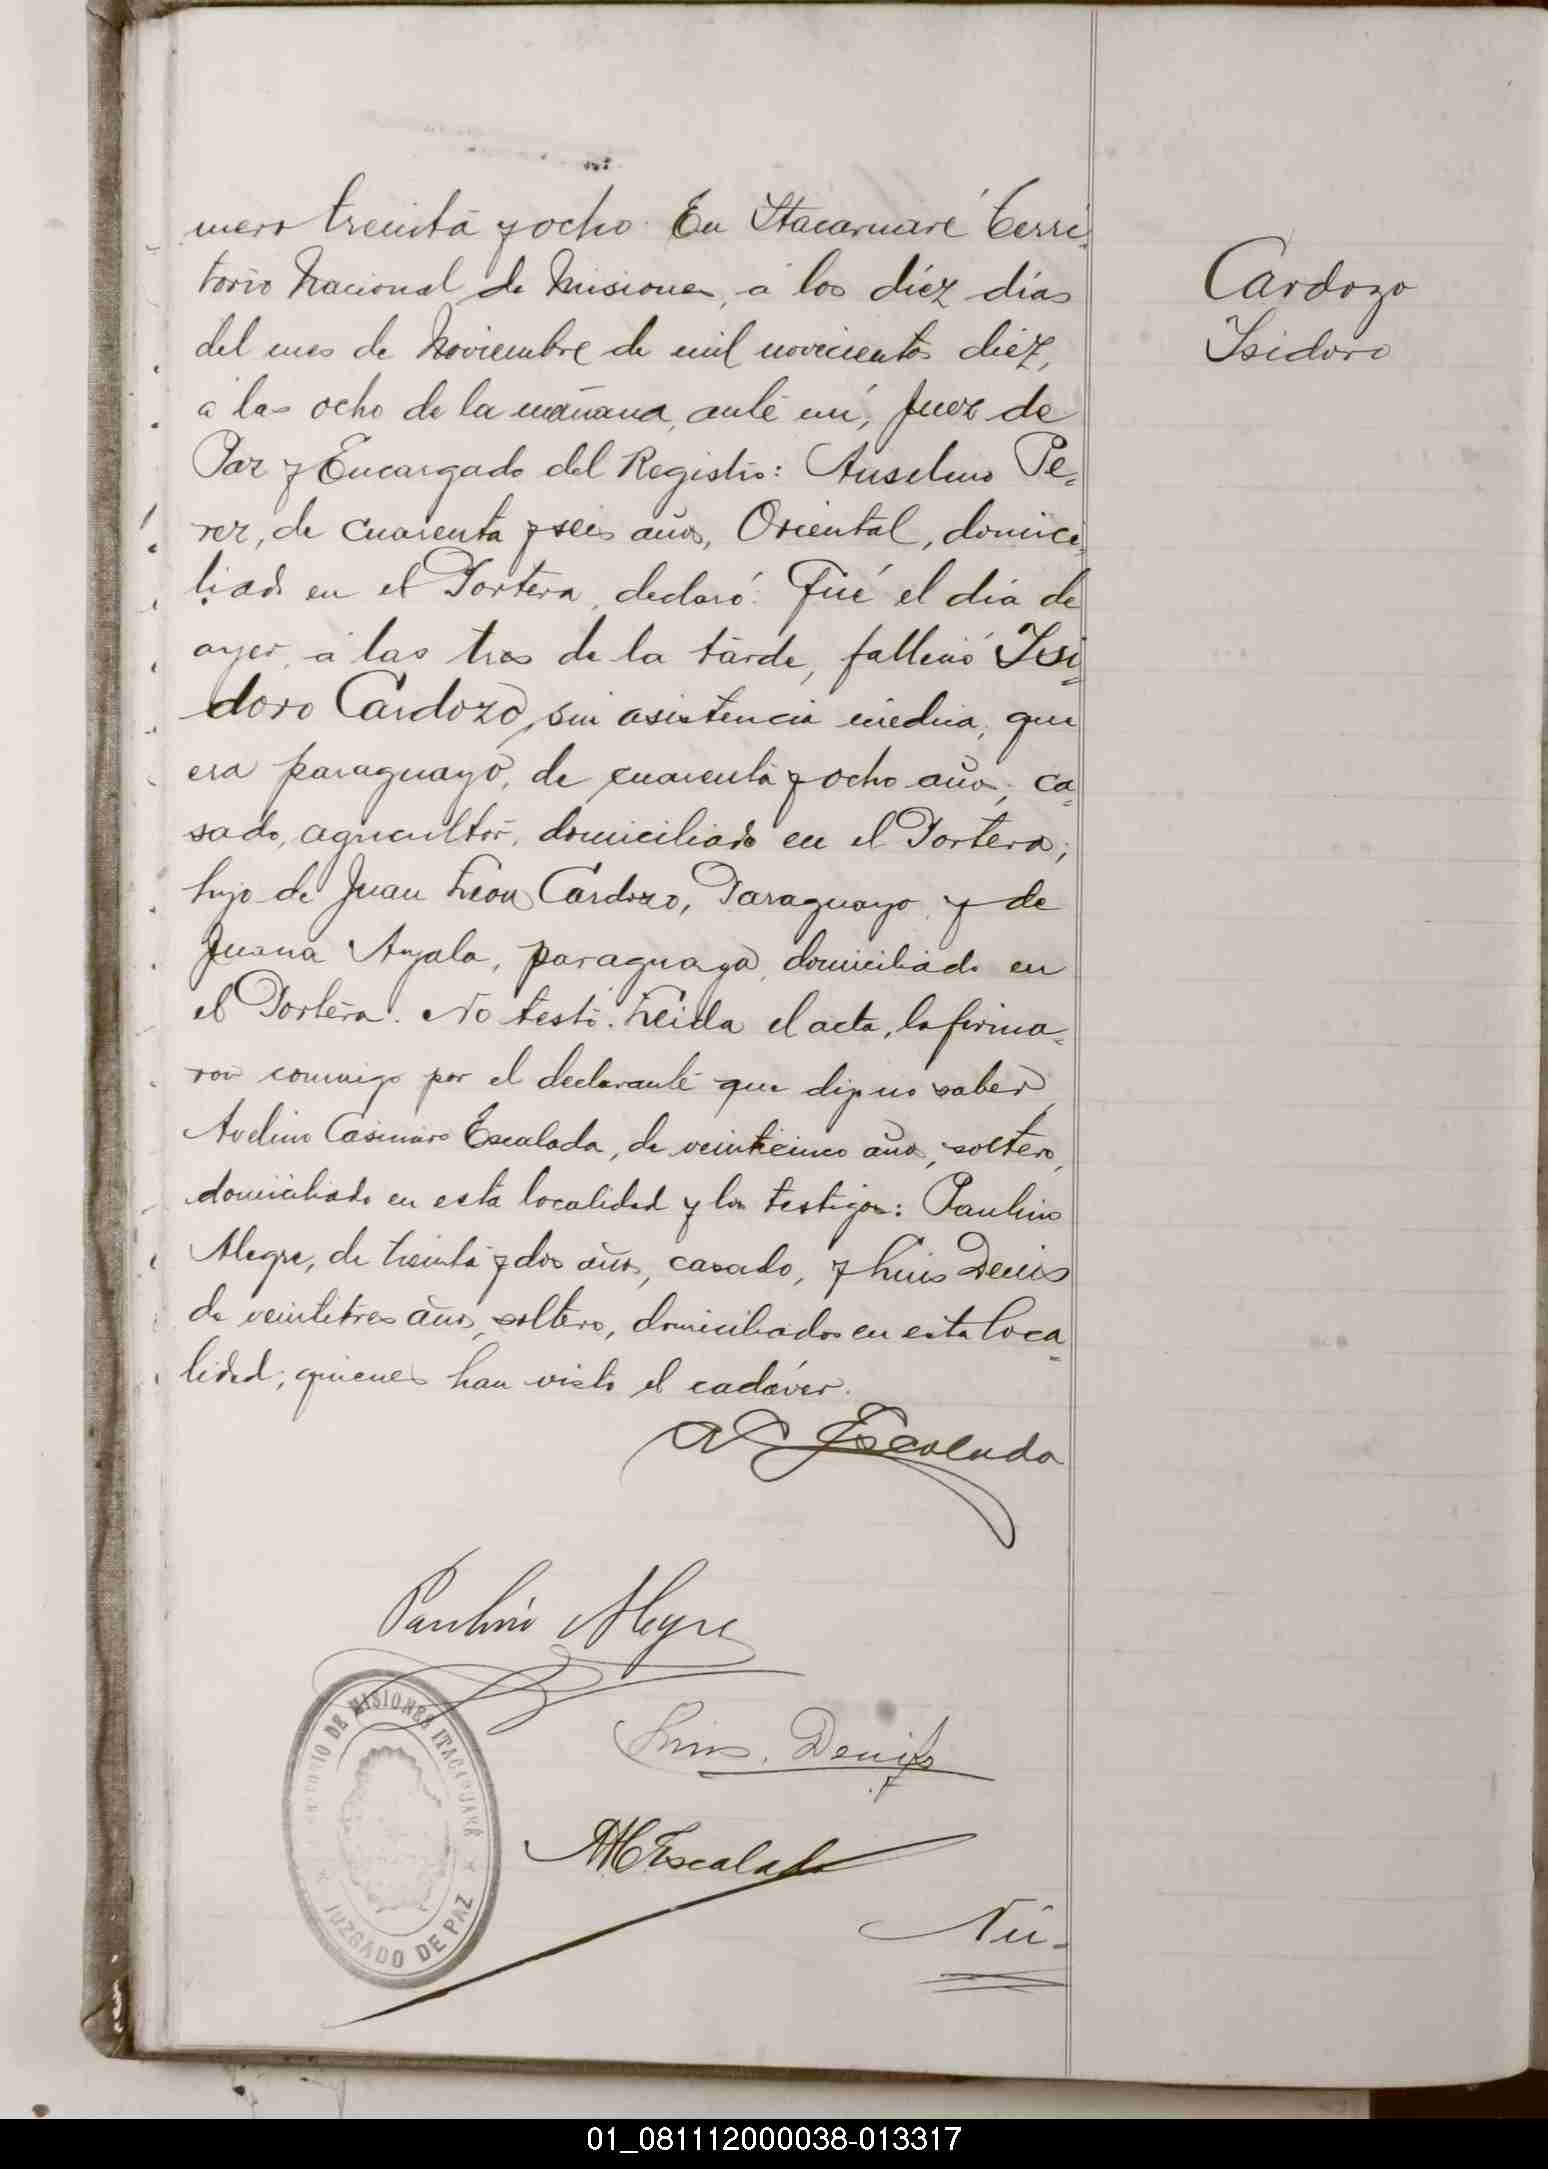 mero treinta y ocho. En Itacaruaré Terri-
torio Nacional de Misiones, á los diéz dias
del mes de Noviembre de mil novecientos diéz,
á las ocho de la mañana, ante mí, Juez de
Paz y Encargado del Registro: Anselmo Pe-
rez, de cuarenta y seis años, Oriental, domici-
liado en el Portera, declaró: Fué el día de
ayer, á las tres de la tarde, falleció Isi-
doro Cardozo, sin asistencia médica, que
era paraguayo, de cuarenta y ocho años, ca-
sado, agricultor, domiciliado en el Portera;
hijo de Juan Leon Cardozo, Paraguayo y de
Juana Ayala, paraguaya, domiciliado en
el Portera. No testó. Leida el acta, la firma-
ron conmigo por el declarante que dijo no saber
Avelino Casimiro Escalada, de veinticinco años, soltero,
domiciliado en esta localidad y los testigos: Paulino
Alegre, de treinta y dos años, casado, y Luis Denis
de veintitres años, soltero, domiciliados en esta loca-
lidad; quienes han visto el cadáver.
A C Escalada
Paulino Alegre
Luis. Denis
Escalada
Nú-
Cardozo
Isidoro
DE MISIONES ITACARUARÉ
JUZGADO DE PAZ
01_081112000038-013317